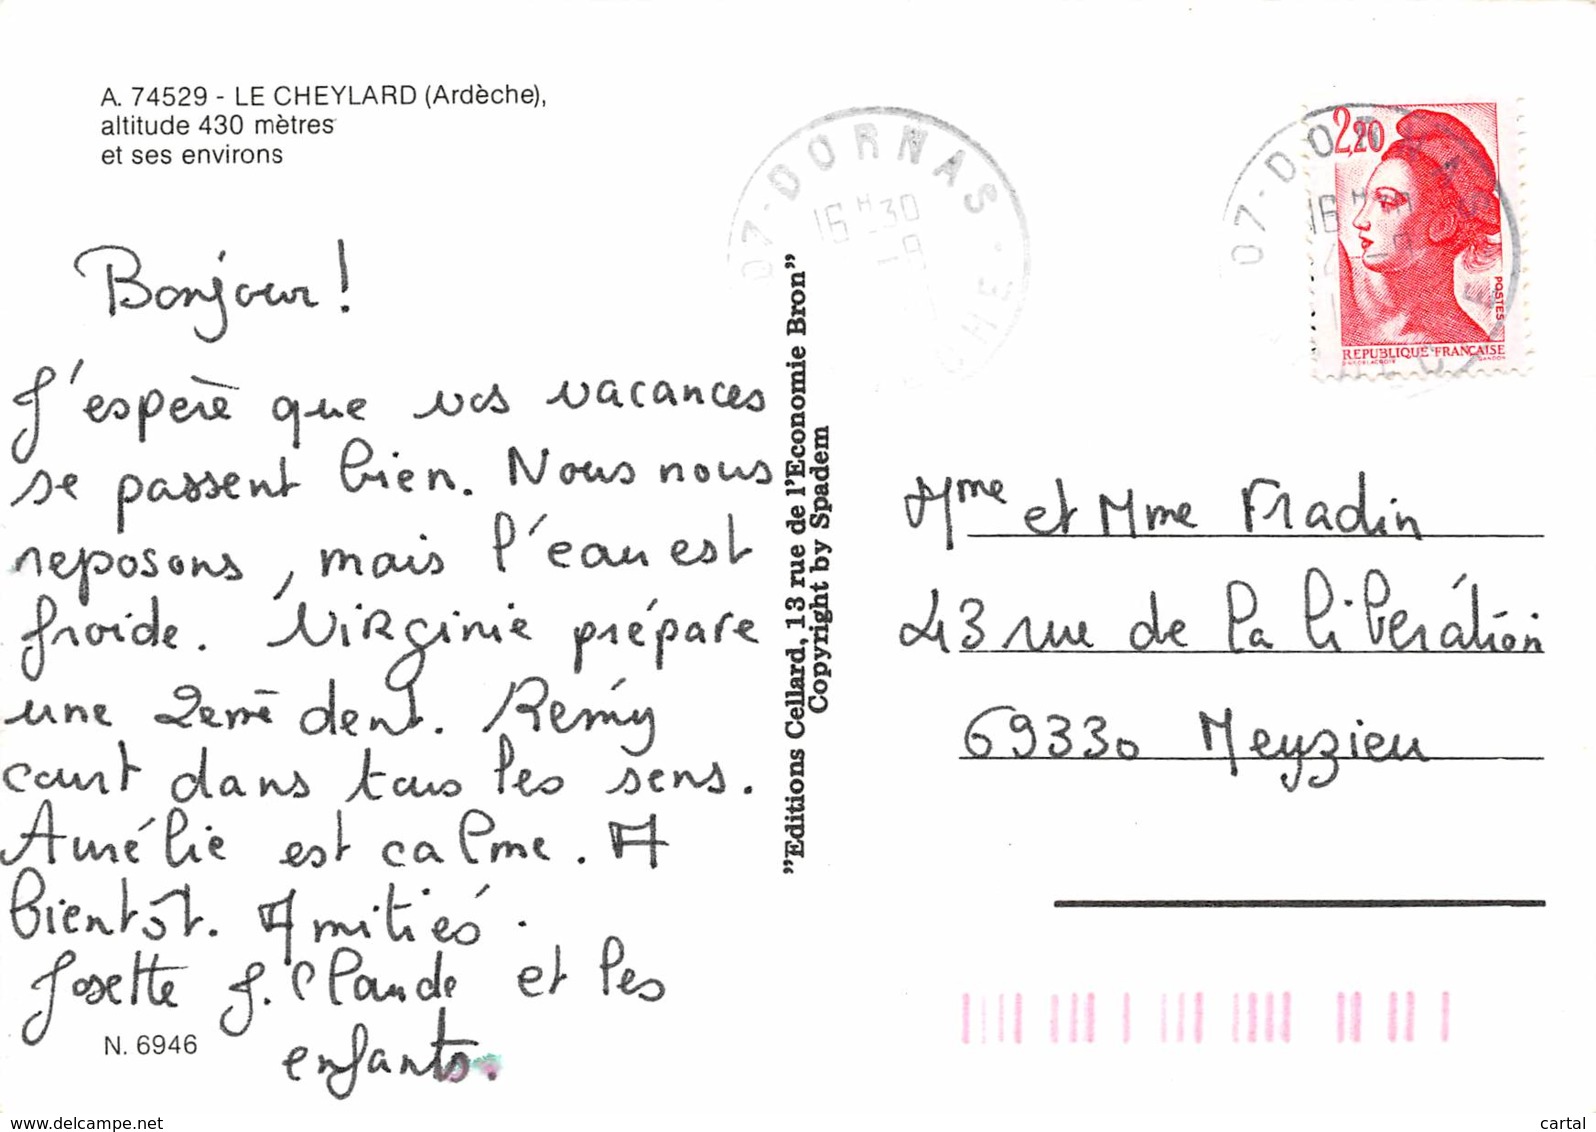 A. 74529 - LE CHEYLARD (Ardèche),
altitude 430 mètres
et ses environs
Bonjour !
J'espère que vos vacances
se passent bien. Nous nous
reposons, mais l'eau est
froide. Virginie prépare
une 2eme dent. Remy
court dans tous les sens.
Aurélie est calme. A
bientôt. Amitiés.
Josette J. Claude et les
enfants.
N. 6946
"Editions Cellard, 13 rue de l'Economie Bron"
Copyright by Spadem
07-DORNAS
16H30
2,20
POSTES
REPUBLIQUE FRANÇAISE
07-DORNAS
16H
Mme et Mme Fradin
43 rue de la libération
69330 Meyzieu
www.delcampe.net
cartal